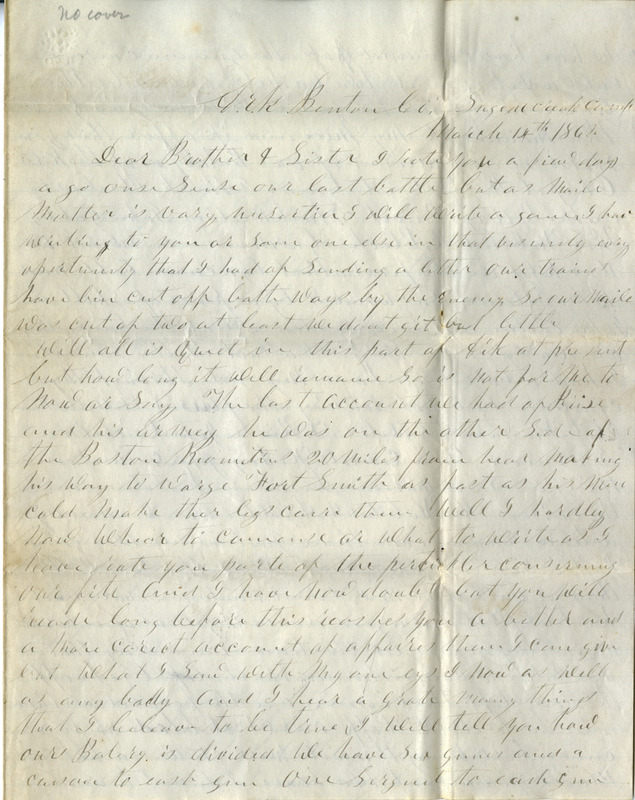 no cover
Ark Benton Co. Sugar creek Camp
March 14th 1862
Dear Brother & Sister I rote you a few days
a go onse Sense our last battle but as Maile
Matter is vary unsertin I will write a gane I have
writing to you or Some one else in that visinity evry
opertunity that I had of Sending a letter our trains
have bin cut off bath ways by the Enemy So our Maile
was cut of two at least we dont git but little
Will all is Quiet in this part of Ark at present
but how long it will remane So is Not for Me to
Now or Say The last account we had of Prise
and his armey he was on the other Side of
the Boston Mountins 20 Miles from hear Making
his way to wargs Fort Smith as fast as his Men
cold Make ther legs carre them Well I hardly
Now whear to comense or what to write as I
have rote you parte of the perticklers consirning
our fite And I have Now doubt but you will
reade long before this reaches you a better and
a More corect account of affaires than I can give
but what I Saw with My one eys I Now as well
as any bady and I hear a grate many things
that I beleave to be true I will tell you how
our Batery is divided We have Six guns and a
caison to each gun One Sirgent to each gun